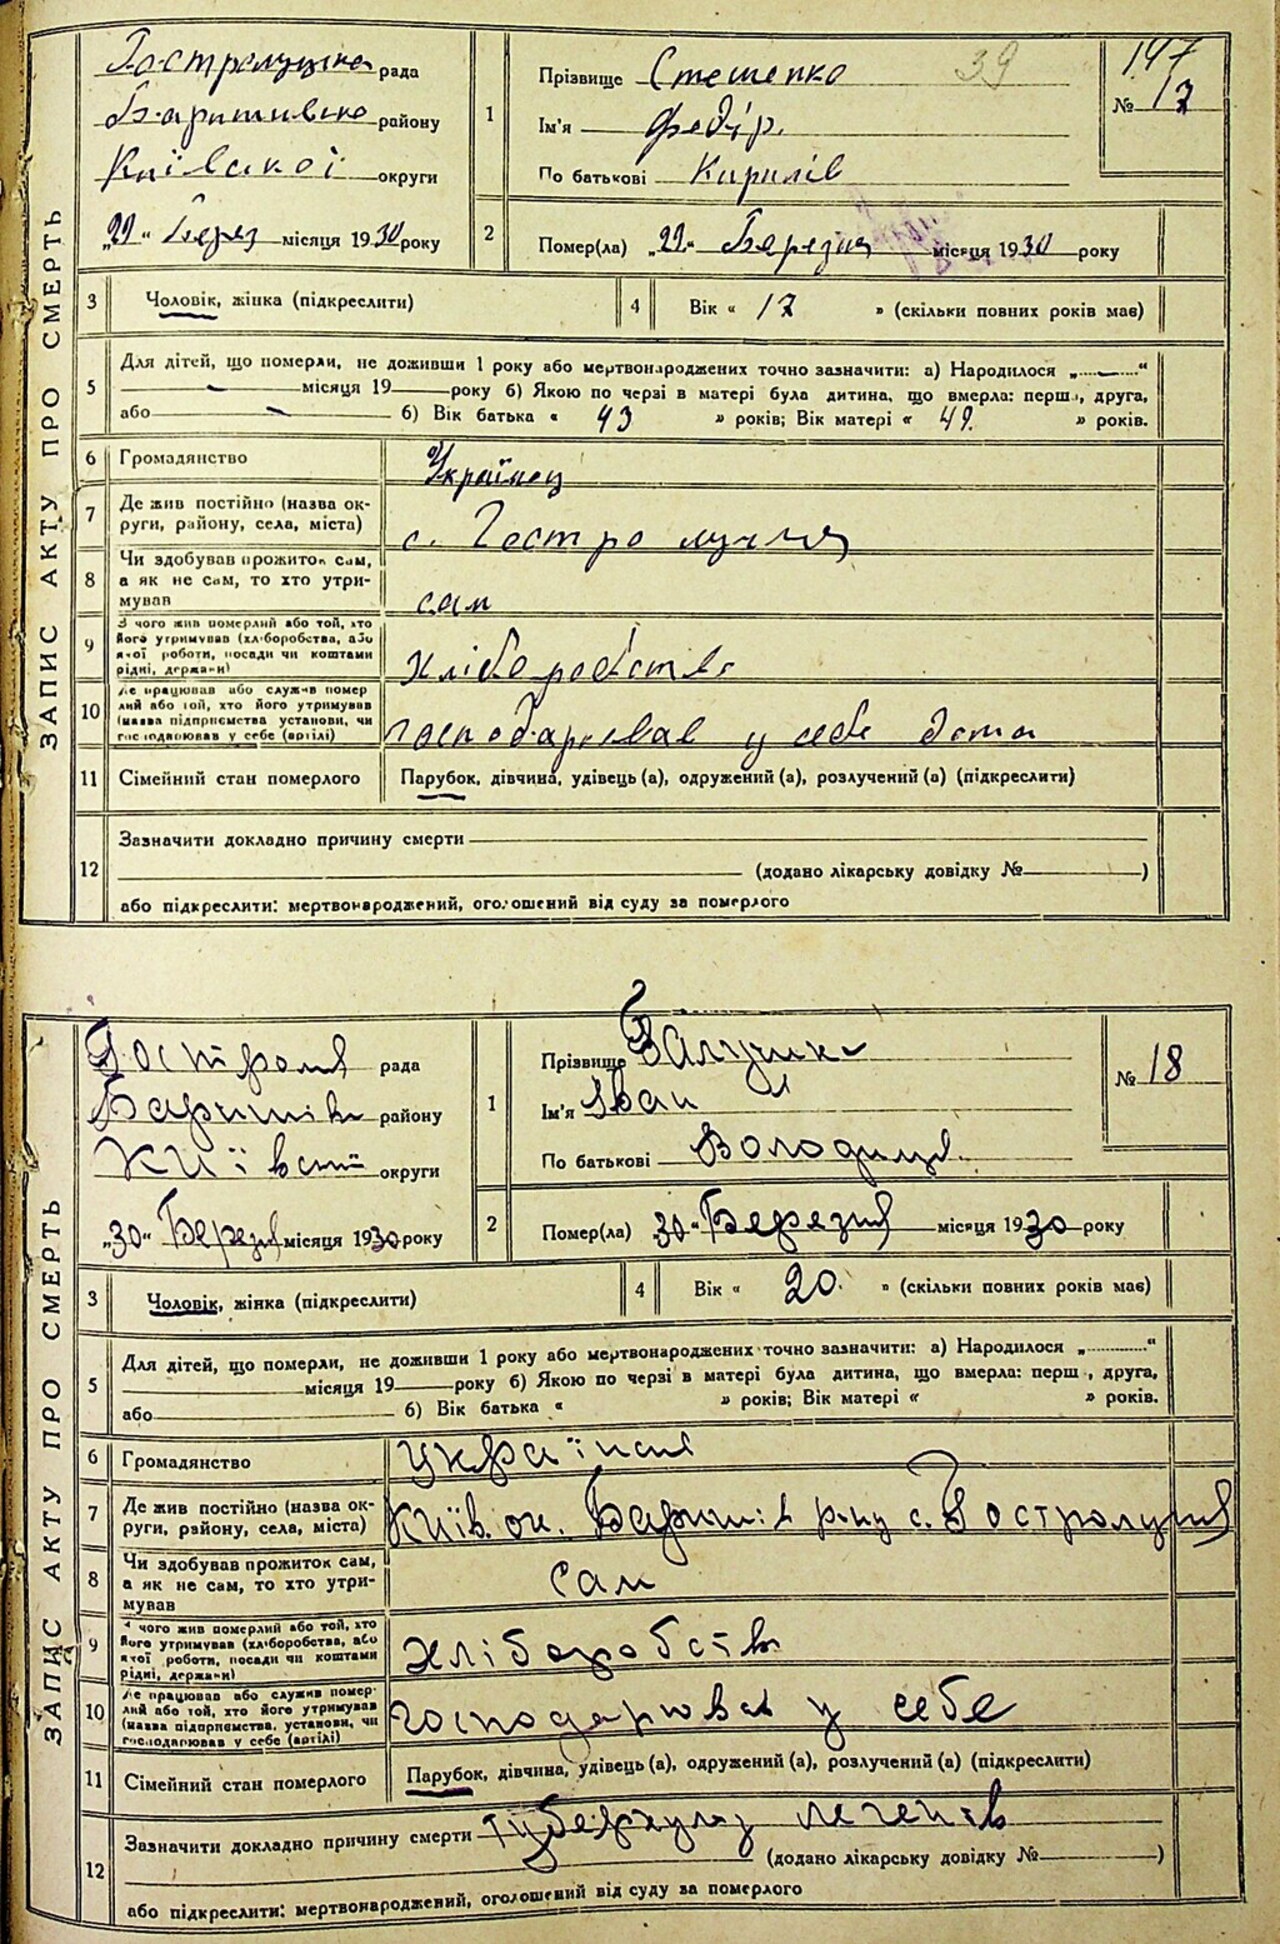 ЗАПИС АКТУ ПРО СМЕРТЬ
рада
району
Київської округи
„29“ Берез місяця 1930 року
39
147
№ 17
1 Прізвище Стешенко
Ім'я Федір.
По батькові Кирилів
2 Помер(ла) „29“ Березня місяця 1930 року
3 Чоловік, жінка (підкреслити)
4 Вік « 17 » (скільки повних років має)
5 Для дітей, що померли, не доживши 1 року або мертвонароджених точно зазначити: а) Народилося „ “
місяця 19 року б) Якою по черзі в матері була дитина, що вмерла: перша, друга,
або б) Вік батька « 43 » років; Вік матері « 49. » років.
6 Громадянство Українец
7 Де жив постійно (назва ок-
руги, району, села, міста) с. Гостролуччя
8 Чи здобував прожиток сам,
а як не сам, то хто утри-
мував сам
9 З чого жив померлий або той, хто
його утримував (хліборобства, або
якої роботи, посади чи коштами
рідні, держави) хліборобства
10 Де працював або служив помер
лий або той, хто його утримував
(назва підприємства установи, чи
господарював у себе (артілі) господарював у себе дома
11 Сімейний стан померлого Парубок, дівчина, удівець (а), одружений (а), розлучений (а) (підкреслити)
12 Зазначити докладно причину смерти
(додано лікарську довідку № )
або підкреслити: мертвонароджений, оголошений від суду за померлого
ЗАПИС АКТУ ПРО СМЕРТЬ
рада
Баришів району
округи
„30“ Березня місяця 1930 року
№ 18
1 Прізвище
Ім'я Іван
По батькові
2 Помер(ла) „30“ Березня місяця 1930 року
3 Чоловік, жінка (підкреслити)
4 Вік « 20. » (скільки повних років має)
5 Для дітей, що померли, не доживши 1 року або мертвонароджених точно зазначити: а) Народилося „ “
місяця 19 року б) Якою по черзі в матері була дитина, що вмерла: перш , друга,
або б) Вік батька « » років; Вік матері « » років.
6 Громадянство
7 Де жив постійно (назва ок-
руги, району, села, міста) Київ. ок. Баришів р-ну с. Гостролуччя
8 Чи здобував прожиток сам,
а як не сам, то хто утри-
мував сам
9 З чого жив померлий або той, хто
його утримував (хліборобства, або
якої роботи, посади чи коштами
рідні, держави) хліборобств
10 Де працював або служив помер-
лий або той, хто його утримував
(назва підприємства, установи, чи
господарював у себе (артілі) господарював у себе
11 Сімейний стан померлого Парубок, дівчина, удівець (а), одружений (а), розлучений (а) (підкреслити)
12 Зазначити докладно причину смерти туберкульоз легенів
(додано лікарську довідку № )
або підкреслити: мертвонароджений, оголошений від суду за померлого